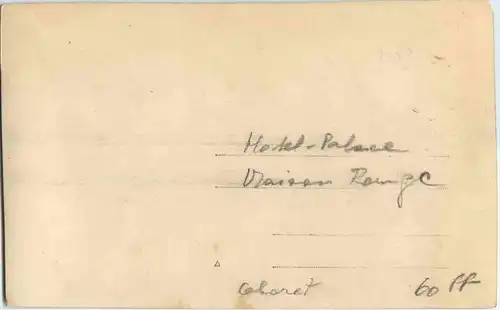 Hotel-Palace
Maison Rouge
Cabaret 60 FF